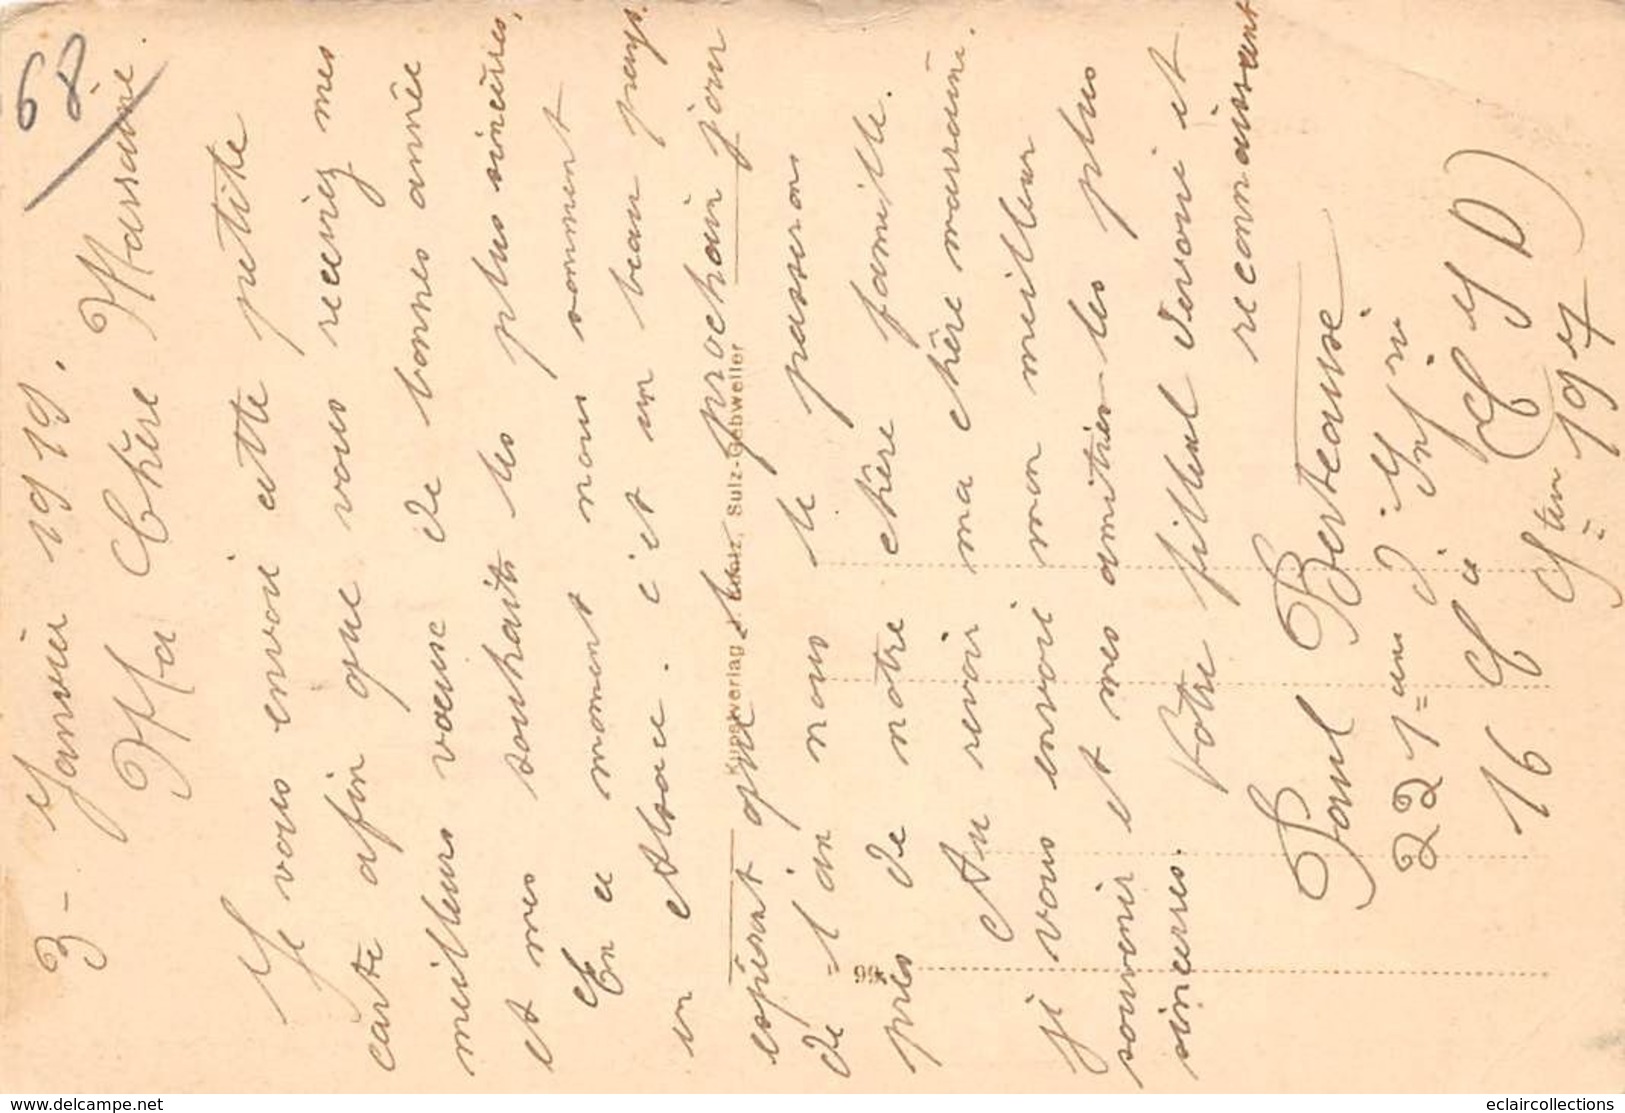 68.
3 - Janvier 1919.
Ma Chère Marraine.
Je vous envoie cette petite
carte afin que vous receviez mes
meilleurs voeux de bonnes année
et mes souhaits les plus sincères,
En ce moment nous sommes
en Alsace. c'est un beau pays.
espérant que le prochain jour
de l'an nous le passerons
près de notre chère famille.
Au revoir ma chère marraine.
je vous envoie mon meilleur
souvenir et mes amitiés les plus
sincères. Votre filleul dévoué et
reconnaissant
Paul Berteausé
221=eme d'Inf rie
16 Cie (C I D)
S=teur 197
Kunstverlag Sulz-Gebweiler
99
www.delcampe.net
eclaircollections